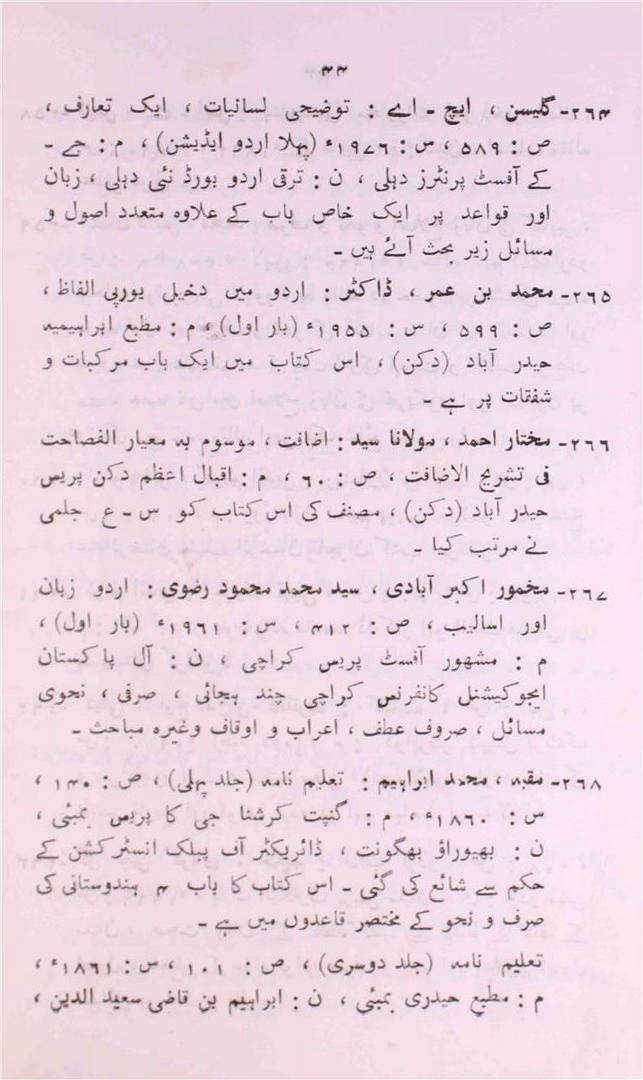 ۴۴
۲۶۴۔ گلیسن ، ایچ ۔ اے : توضیحی لسانیات ، ایک تعارف ،
ص : ۵۸۹ ، س : ۱۹۷۶ء (پہلا اردو ایڈیشن) ، م : جے ۔
کے آفسٹ پرنٹرز دہلی ، ن : ترقی اردو بورڈ نئی دہلی ، زبان
اور قواعد پر ایک خاص باب کے علاوہ متعدد اصول و
مسائل زیر بحث آئے ہیں ۔
۲۶۵۔ محمد بن عمر ، ڈاکٹر : اردو میں دخیل یورپی الفاظ ،
ص : ۵۹۹ ، س : ۱۹۵۵ء (بار اول) ، م : مطبع ابراہیمیہ
حیدر آباد (دکن) ، اس کتاب میں ایک باب مرکبات و
شفقات پر ہے ۔
۲۶۶۔ مختار احمد ، مولانا سید : اضافت ، موسوم بہ معیار الفصاحت
فی تشریح الاضافت ، ص : ۶۰ ، م : اقبال اعظم دکن پریس
حیدر آباد (دکن) ، مصنف کی اس کتاب کو س ۔ ع جلمی
نے مرتب کیا ۔
۲۶۷۔ مخمور اکبر آبادی ، سید محمد محمود رضوی : اردو زبان
اور اسالیب ، ص : ۴۱۲ ، س : ۱۹۶۱ء (بار اول) ،
م : مشہور آفسٹ پریس کراچی ، ن : آل پاکستان
ایجوکیشنل کانفرنس کراچی چند ہجائی ، صرفی ، نحوی
مسائل ، صروف عطف ، اعراب و اوقاف وغیرہ مباحث ۔
۲۶۸۔ مقبہ ، محمد ابراہیم : تعلیم نامہ (جلد پہلی) ، ص : ۱۴۰ ،
س : ۱۸۶۰ء ، م : گنپت کرشنا جی کا پریس بمبئی ،
ن : بھیوراؤ بھگونت ، ڈائریکٹر آف پبلک انسٹرکشن کے
حکم سے شائع کی گئی ۔ اس کتاب کا باب ۴ ہندوستانی کی
صرف و نحو کے مختصر قاعدوں میں ہے ۔
تعلیم نامہ (جلد دوسری) ، ص : ۱۰۱ ، س : ۱۸۶۱ء ،
م : مطبع حیدری بمبئی ، ن : ابراہیم بن قاضی سعید الدین ،